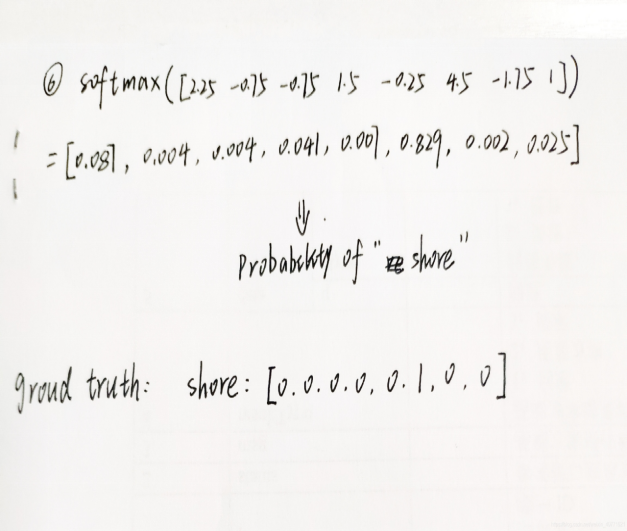 ⑥ softmax([2.25 -0.75 -0.75 1.5 -0.25 4.5 -1.75 1])
=[0.087, 0.004, 0.004, 0.041, 0.007, 0.829, 0.002, 0.025]
⇓
Probability of "shore"
groud truth: shore: [0.0.0.0,0.1,0,0]